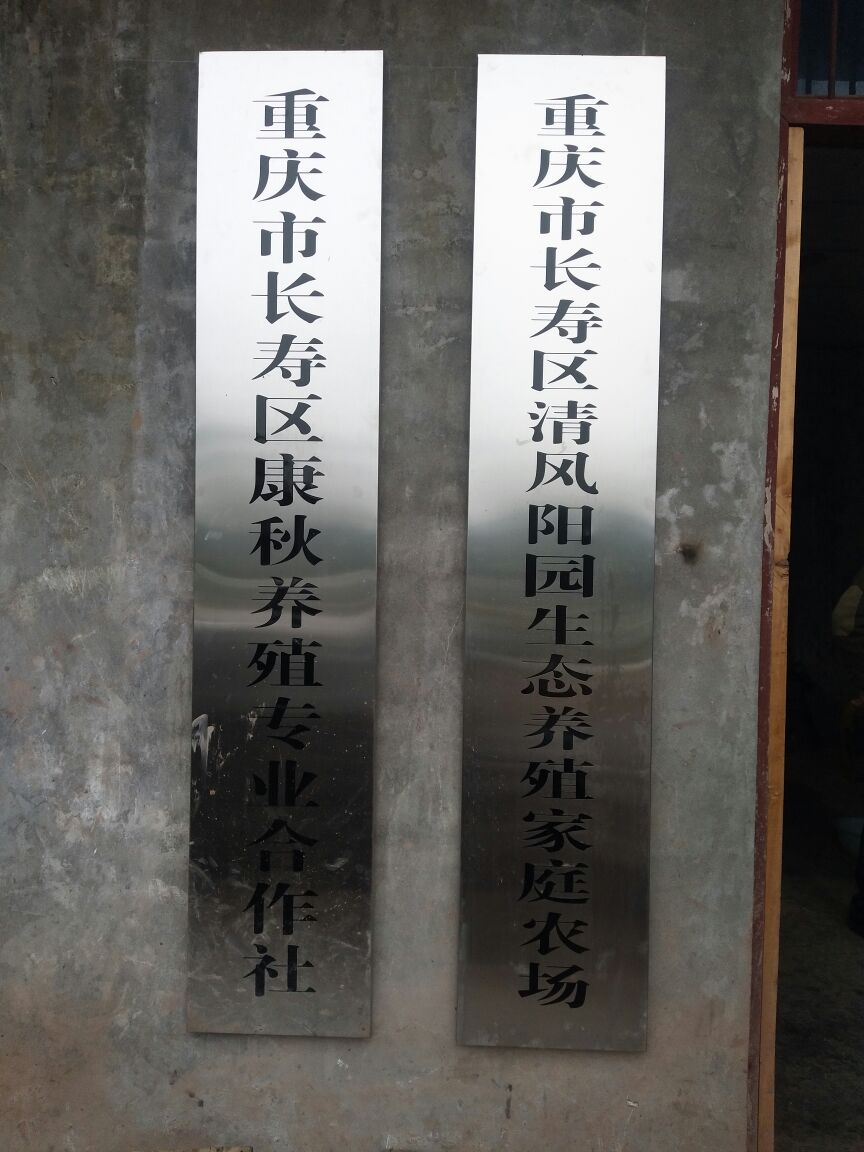 重庆市长寿区康秋养殖专业合作社
重庆市长寿区清风阳园生态养殖家庭农场